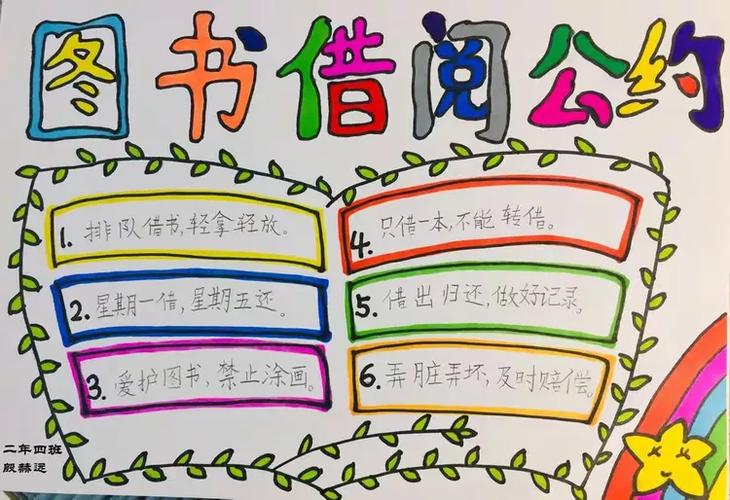 图书借阅公约
1. 排队借书,轻拿轻放。
2. 星期一借,星期五还。
3. 爱护图书,禁止涂画。
4. 只借一本,不能转借。
5. 借出归还,做好记录。
6. 弄脏弄坏,及时赔偿。
二年四班
殷赫远